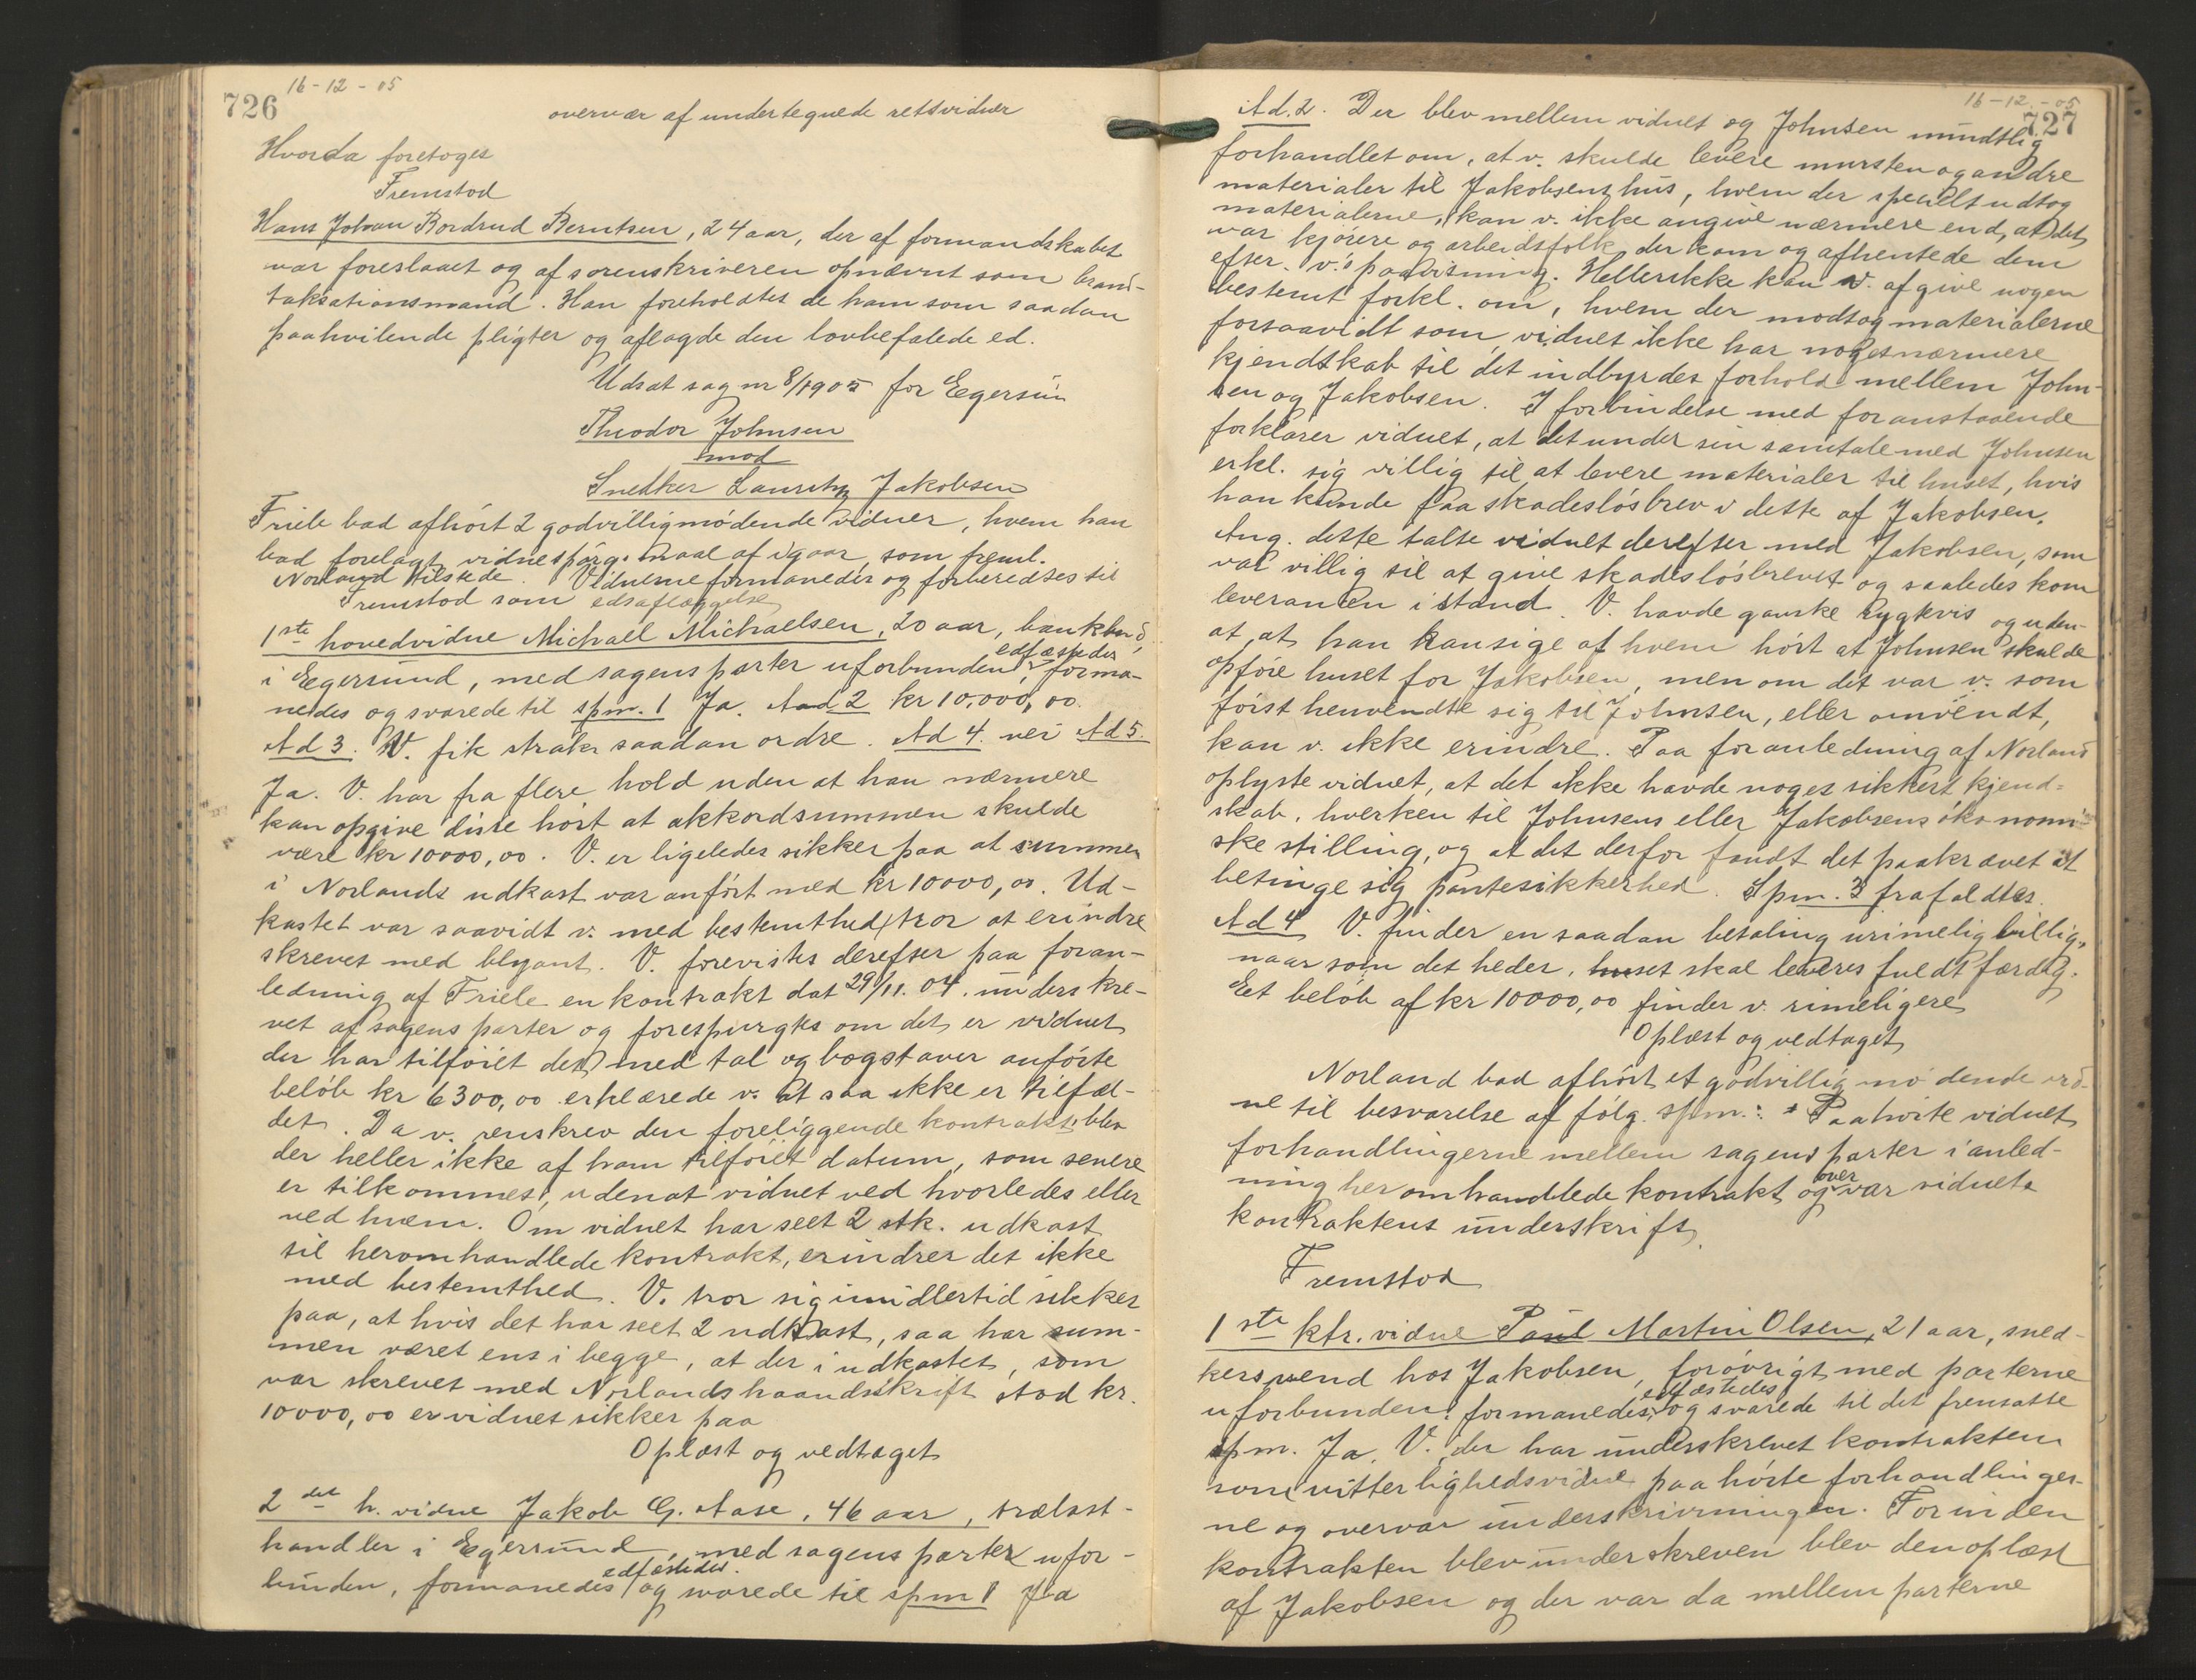 16-12-05
726
overvær af undertegnede retsvidner
Hvorda foretoges
Fremstod
Hans Johan Bordrud Berntsen, 24 aar, der af formandskabet
var foreslaaet og af sorenskriveren opnævnt som brand-
taksationsmand. Han foreholdtes de ham som saadan
paahvilende pligter og aflagde den lovbefalede ed.
Udsat sag nr 8/1905 for Egersund
Theodor Johnsen
mod
Snedker Lauritz Jakobsen
Friele bad afhørt 2 godvilligmødende vidner, hvem han
bad forelagt vidnespørgsmaal af igaar som freml.
Norland tilstede. Vidnerne formanedes og forberedtes til
Fremstod som edsaflæggelse
1ste hovedvidne Michael Michaelsen, 20 aar, bankbud
i Egersund, med sagens parter uforbunden, edfæstedes, forma-
nedes og svarede til spm. 1 Ja. Ad 2 kr 10,000,00.
Ad 3. V. fik straks saadan ordre. Ad 4. nei Ad 5.
Ja. V. har fra flere hold uden at han nærmere
kan opgive disse hørt at akkordsummen skulde
være kr 10000,00. V. er ligeledes sikker paa at summen
i Norlands udkast var anført med kr 10000,00. Ud-
kastet var saavidt v. med bestemthed tror at erindre
skrevet med blyant. V. forevistes derefter paa foran-
ledning af Friele en kontrakt dat 29/11. 04. underskre-
vet af sagens parter og forespurgtes om det er vidnet
der har tilføiet det med tal og bogstaver anførte
beløb kr 6300,00 erklærede v. at saa ikke er tilfæl-
det. Da v. renskrev den foreliggende kontrakt, blev
der heller ikke af ham tilføiet datum, som senere
er tilkommet, udenat vidnet ved hvorledes eller
ved hvem. Om vidnet har seet 2 stk. udkast
til heromhandlede kontrakt, erindrer det ikke
med bestemthed. V. tror sig imidlertid sikker
paa, at hvis det har seet 2 udkast, saa har sum-
men været ens i begge, at der i udkastet, som
var skrevet med Norlands haandskrift stod kr.
10000,00 er vidnet sikker paa
Oplæst og vedtaget
2det h. vidne Jakob G. Aase, 46 aar, trælast-
handler i Egersund, med sagens parter ufor-
bunden, formanedes, edfæstedes og svarede til spm 1 Ja
16-12-05
727
Ad. 2. Der blev mellem vidnet og Johnsen mundtlig
forhandlet om, at v. skulde levere mursten og andre
materialer til Jakobsens hus, hvem der specielt udtog
materialerne, kan v. ikke angive nærmere end, at det
var kjørere og arbeidsfolk der kom og afhentede dem
efter v.'s paavisning. Hellerikke kan v. afgive nogen
bestemt forkl. om, hvem der modtog materialerne
forsaavidt som vidnet ikke har noget nærmere
kjendskab til det indbyrdes forhold mellem John-
sen og Jakobsen. I forbindelse med foranstaaende
forklarer vidnet, at det under sin samtale med Johnsen
erkl. sig villig til at levere materialer til huset, hvis
han kunde faa skadesløsbrev i dette af Jakobsen.
Ang. dette talte vidnet derefter med Jakobsen, som
var villig til at give skadesløsbrevet og saaledes kom
leverancen i stand. V. havde ganske rygtevis og uden-
at, at han kan sige af hvem hørt at Johnsen skulde
opføre huset for Jakobsen, men om det var v. som
først henvendte sig til Johnsen, eller omvendt,
kan v. ikke erindre. Paa foranledning af Norland
oplyste vidnet, at det ikke havde noget sikkert kjend-
skab, hverken til Johnsens eller Jakobsens økonomi-
ske stilling, og at det derfor fandt det paakrævet at
betinge sig pantesikkerhed. Spm. 3 frafaldtes.
Ad 4 V. finder en saadan betaling urimelig billig,
naar som det heder, huset skal leveres fuldt færdig.
Et beløb af kr 10000,00 finder v. rimeligere
Oplæst og vedtaget
Norland bad afhørt et godvillig mødende vid-
ne til besvarelse af følg. spm.: Paahørte vidnet
forhandlingerne mellem sagens parter i anled-
ning her omhandlede kontrakt og overvar vidnet
kontraktens underskrift.
Fremstod
1ste ktr. vidne Paul Martin Olsen, 21 aar, sned-
kersvend hos Jakobsen, forøvrigt med parterne
uforbunden, formanedes, edfæstedes og svarede til det fremsatte
spm. Ja. V. der har underskrevet kontrakten
som vitterlighedsvidne paahørte forhandlinger-
ne og overvar underskrivningen. Forinden
kontrakten blev underskreven blev den oplæst
af Jakobsen og der var da mellem parterne